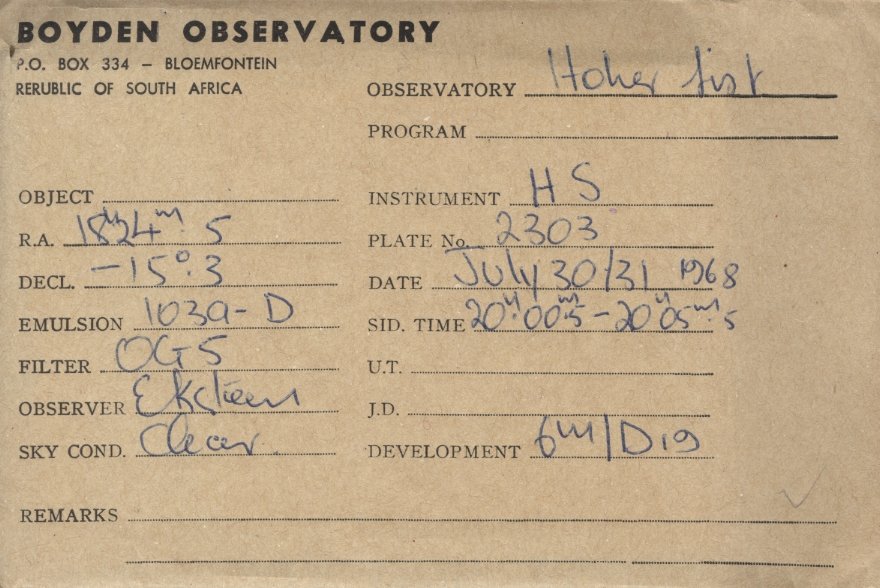 BOYDEN OBSERVATORY
P.O. BOX 334 – BLOEMFONTEIN
RERUBLIC OF SOUTH AFRICA
OBSERVATORY Hoher List
PROGRAM
OBJECT
INSTRUMENT HS
R.A. 18h24m.5
PLATE No. 2303
DECL. -15°.3
DATE July 30/31 1968
EMULSION 103a-D
SID. TIME 20h00m.5-20h05m.5
FILTER OG5
U.T.
OBSERVER Eksteen
J.D.
SKY COND. Clear
DEVELOPMENT 6m/D19
REMARKS